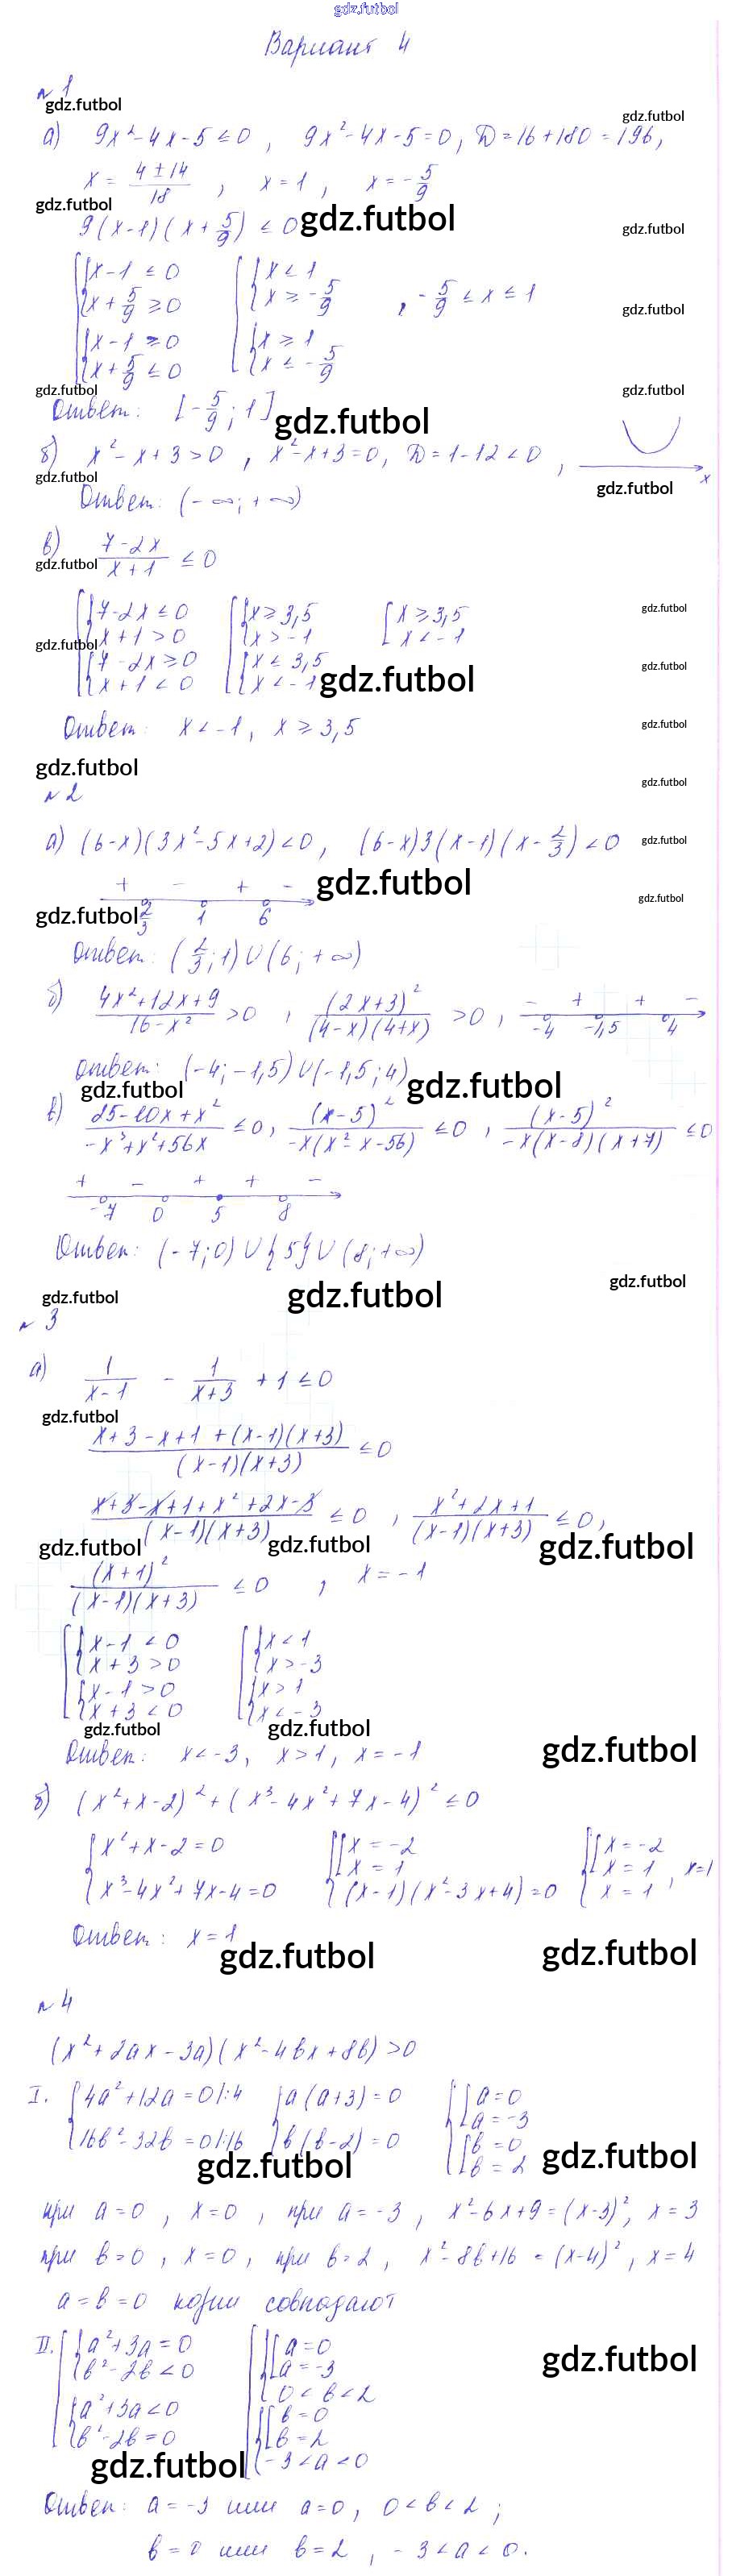 gdz.futbol
Вариант 4
№ 1
gdz.futbol
gdz.futbol
а) 9x² - 4x - 5 ≤ 0, 9x² - 4x - 5 = 0, D = 16 + 180 = 196,
x = (4 ± 14)/18, x = 1, x = -5/9
gdz.futbol
9(x-1)(x + 5/9) ≤ 0
gdz.futbol
gdz.futbol
x - 1 ≤ 0 x < 1
x + 5/9 ≥ 0 x ≥ -5/9, -5/9 ≤ x ≤ 1
gdz.futbol
x - 1 ≥ 0 x ≥ 1
x + 5/9 ≤ 0 x ≤ -5/9
gdz.futbol
gdz.futbol
Ответ: [-5/9; 1]
gdz.futbol
б) x² - x + 3 > 0, x² - x + 3 = 0, D = 1 - 12 < 0, x
gdz.futbol
gdz.futbol
Ответ: (-∞; +∞)
в) (7 - 2x)/(x + 1) ≤ 0
gdz.futbol
7 - 2x ≤ 0 x ≥ 3,5 x ≥ 3,5
gdz.futbol
x + 1 > 0 x > -1 x < -1
gdz.futbol
7 - 2x ≥ 0 x ≤ 3,5
gdz.futbol
x + 1 < 0 x < -1
gdz.futbol
Ответ: x < -1, x ≥ 3,5
gdz.futbol
gdz.futbol
gdz.futbol
№ 2
а) (6-x)(3x² - 5x + 2) < 0, (6-x)3(x-1)(x - 2/3) < 0
gdz.futbol
+ - + -
gdz.futbol
gdz.futbol
gdz.futbol
2/3 1 6
Ответ: (2/3; 1) ∪ (6; +∞)
б) (4x² + 12x + 9)/(16 - x²) > 0, (2x+3)²/((4-x)(4+x)) > 0, - + + -
-4 -1,5 4
Ответ: (-4; -1,5) ∪ (-1,5; 4)
gdz.futbol
gdz.futbol
в) (25 - 10x + x²)/(-x³ + x² + 56x) ≤ 0, (x-5)²/(-x(x² - x - 56)) ≤ 0, (x-5)²/(-x(x-8)(x+7)) ≤ 0
+ - + + -
-7 0 5 8
Ответ: (-7; 0) ∪ {5} ∪ (8; +∞)
gdz.futbol
gdz.futbol
gdz.futbol
№ 3
а) 1/(x-1) - 1/(x+3) + 1 ≤ 0
gdz.futbol
(x + 3 - x + 1 + (x-1)(x+3))/((x-1)(x+3)) ≤ 0
(x + 3 - x + 1 + x² + 2x - 3)/((x-1)(x+3)) ≤ 0, (x² + 2x + 1)/((x-1)(x+3)) ≤ 0,
gdz.futbol
gdz.futbol
gdz.futbol
(x+1)²/((x-1)(x+3)) ≤ 0, x = -1
x - 1 < 0 x < 1
x + 3 > 0 x > -3
x - 1 > 0 x > 1
x + 3 < 0 x < -3
gdz.futbol
gdz.futbol
gdz.futbol
Ответ: x < -3, x > 1, x = -1
б) (x² + x - 2)² + (x³ - 4x² + 7x - 4)² ≤ 0
x² + x - 2 = 0 x = -2 x = -2
x = 1 x = 1, x = 1
x³ - 4x² + 7x - 4 = 0 (x-1)(x² - 3x + 4) = 0 x = 1
Ответ: x = 1
gdz.futbol
gdz.futbol
№ 4
(x² + 2ax - 3a)(x² - 4bx + 8b) > 0
I. 4a² + 12a = 0 |:4 a(a+3) = 0 a = 0
a = -3
16b² - 32b = 0 |:16 b(b-2) = 0 b = 0
b = 2
gdz.futbol
gdz.futbol
при a = 0, x = 0, при a = -3, x² - 6x + 9 = (x-3)², x = 3
при b = 0, x = 0, при b = 2, x² - 8b + 16 = (x-4)², x = 4
a = b = 0 корни совпадают
II. a² + 3a = 0 a = 0
b² - 2b < 0 a = -3
gdz.futbol
0 < b < 2
a² + 3a < 0 b = 0
b² - 2b = 0 b = 2
-3 < a < 0
gdz.futbol
Ответ: a = -3 или a = 0, 0 < b < 2;
b = 0 или b = 2, -3 < a < 0.